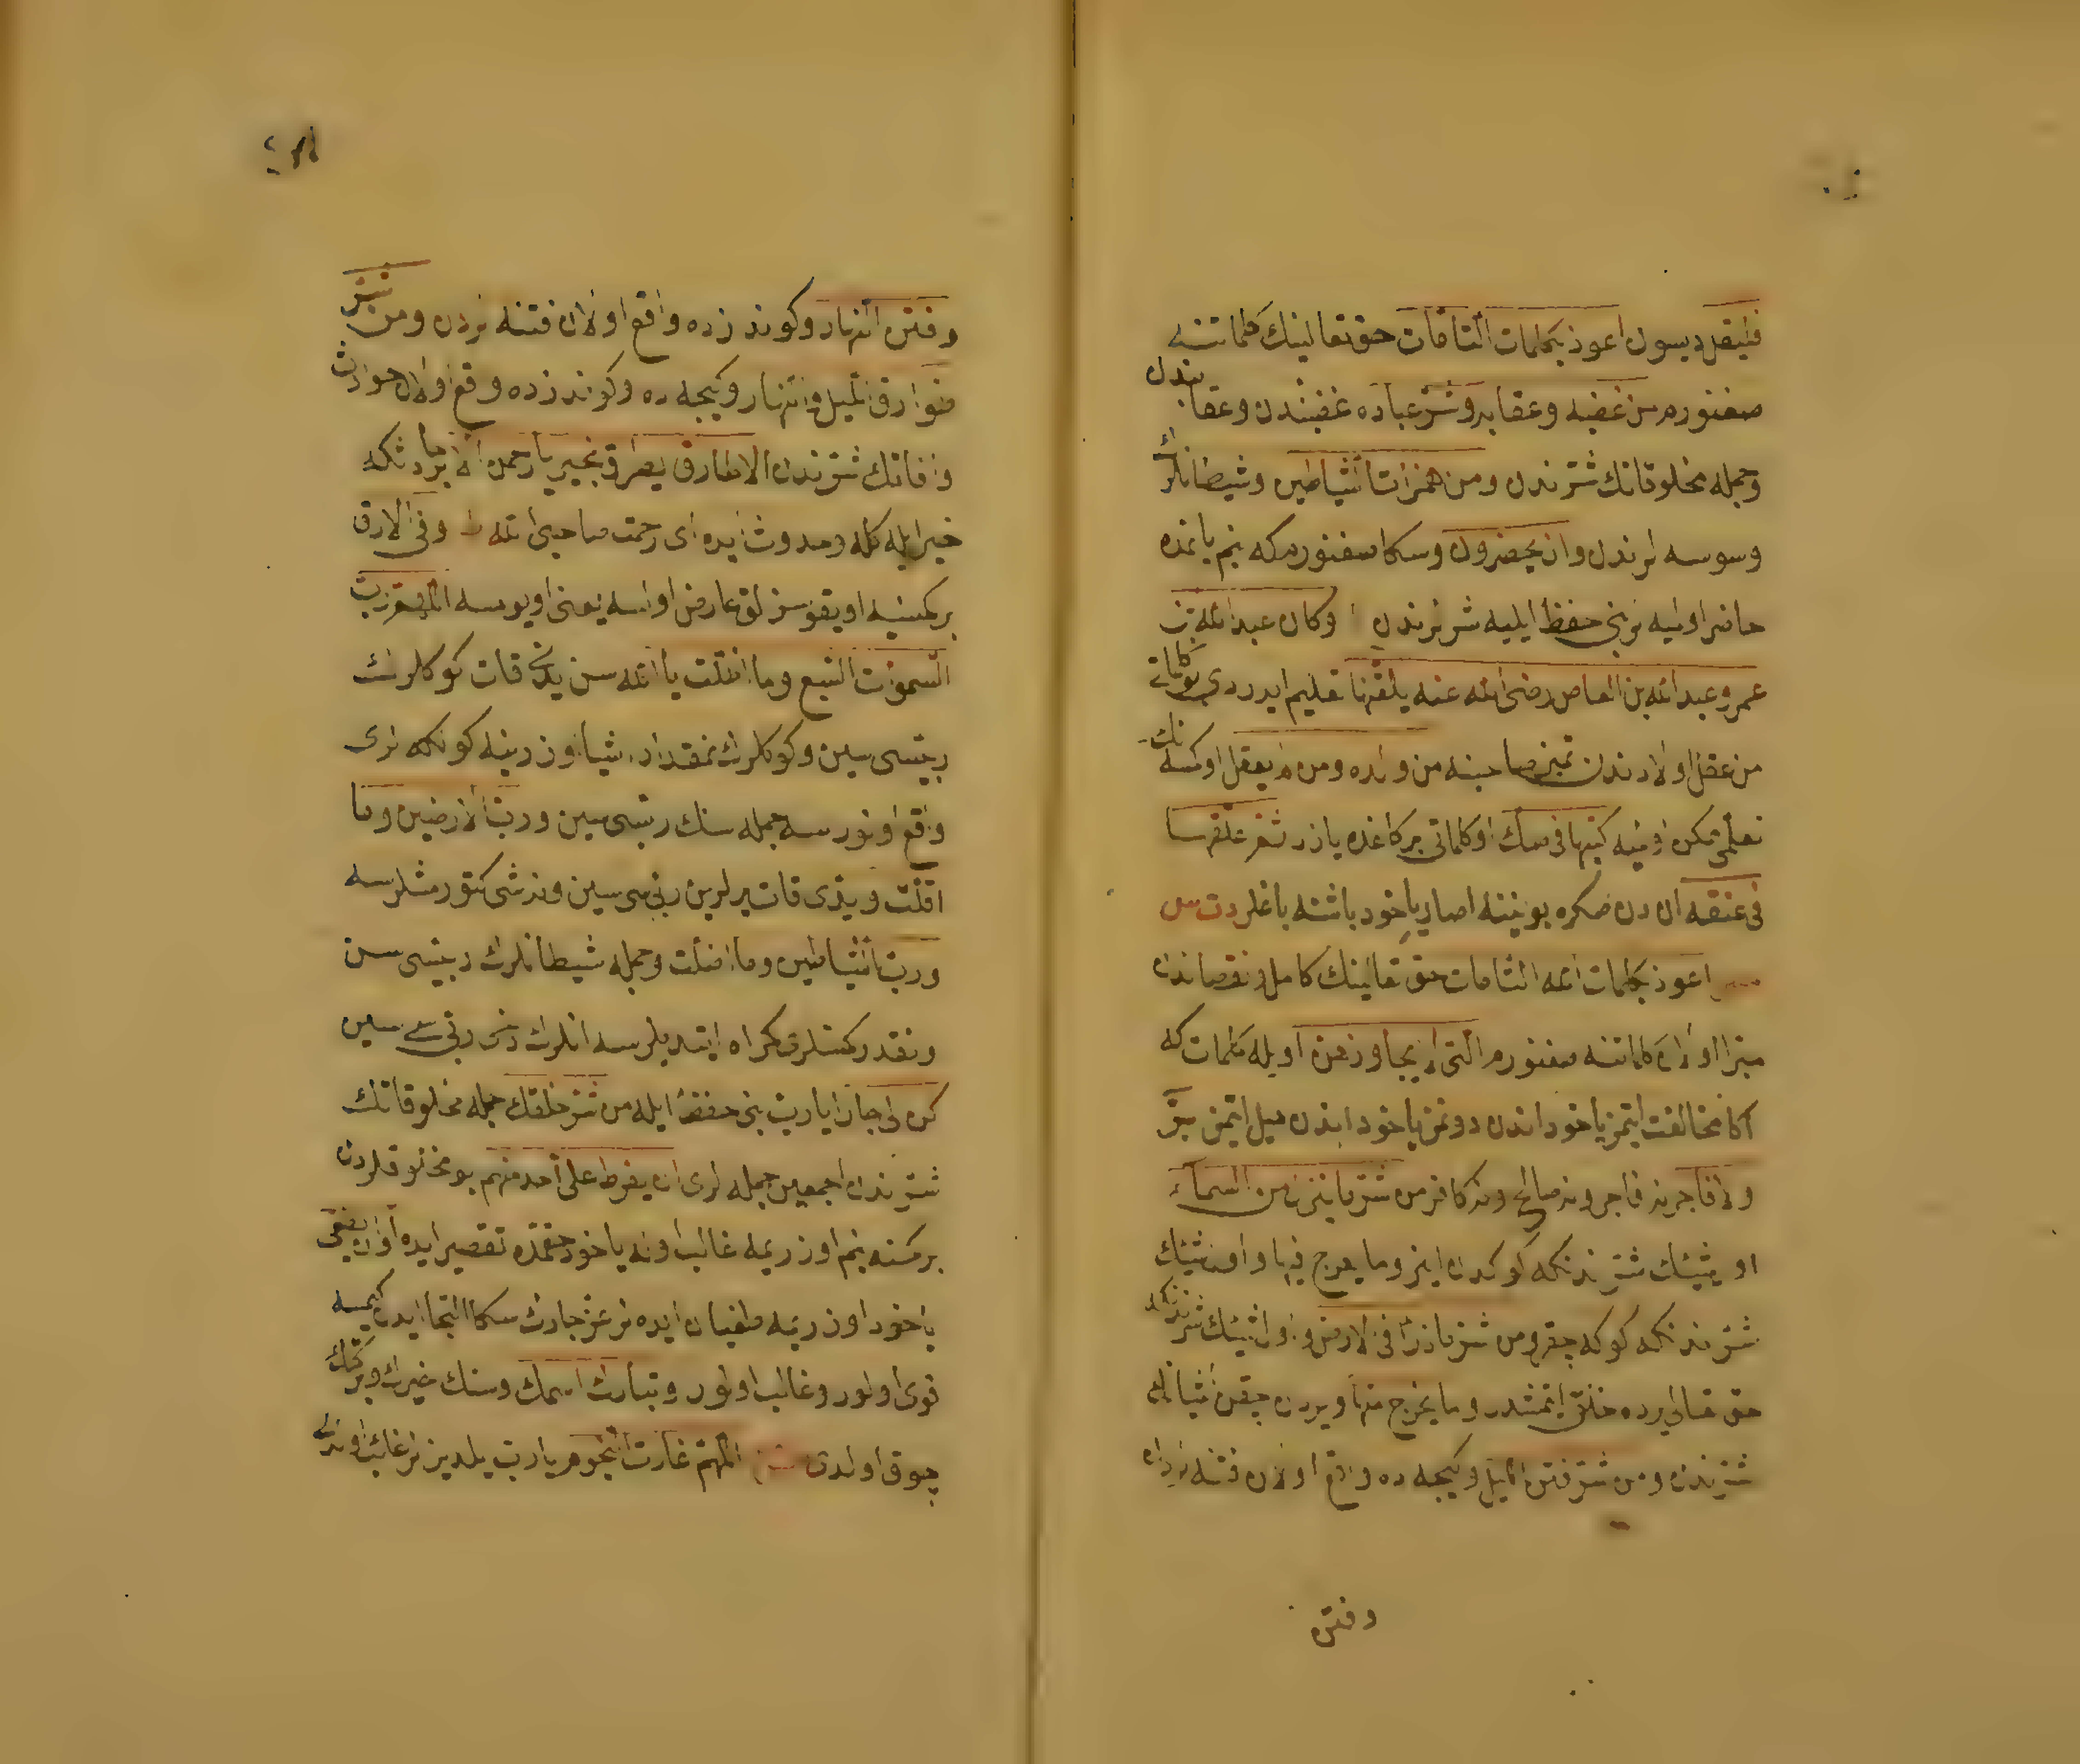 فليقل ديسون اعوذ بكلمات التامات حق تعالينك كلماتنه
صغنورم من غضبه وعقابه وشر عباده غضبندن وعقابندن
وجمله مخلوقاتك شرندن ومن همزات الشياطين وشيطانلرك
وسوسه لرندن وان يحضرون وسكا صغنورمكه بنم يانمده
حاضر اوليه لر بنى حفظ ايليه شرلرندن وكان عبد الله بن
عمرو عبد الله بن العاص رضى الله عنه يلقنها تعليم ايدردى بو كلماتى
من عقل اولادندن تميز صاحبنه من ولده ومن لم يعقل اوكسه نك
تعلمى ممكن اولميه كتبها فى صك او كلماتى بر كاغده يازر ثم علقها
فى عنقه اندن صكره بوينه اصار يا خود باشنه باغلر دت س
اعوذ بكلمات الله التامات حق تعالينك كامل و نقصاندن
مبرا اولان كلماتنه صغنورم التى لا يجاوزهن اويله كلمات كه
اكا مخالفت ايتمز يا خود اندن دونمز يا خود اندن ميل ايتمز بر
ولا فاجر نه فاجر ونه صالح ونه كافر من شر ما ينزل من السماء
اول شيئك شرندنكه كوكدن اينر وما يعرج فيها و اول شيئك
شرندنكه كوكه چقر ومن شر ما ذرأ فى الارض و اول شيئك شرندنكه
حق تعالى يرده خلق ايتمشدر وما يخرج منها ويردن چقن اشيا
شرندن ومن شر فتن الليل وكيجه ده واقع اولان فتنه لردن
وفتن
وفتن النهار وكوندزده واقع اولان فتنه لردن ومن شر
طوارق الليل والنهار وكيجه ده وكوندزده وقع اولان حوادث
وافاتك شرندن الا طارق يطرق بخير يا رحمن الا بر حادثكه
خير ايله كله وحدوث ايده اى رحمت صاحبى الله ط وفى الارق
بر كمسيه اويقوسزلق عارض اولسه يعنى اويومسه اللهم رب
السموات السبع وما اظلت يا الله سن يدى قات كوكلرك
ربيسى سين وكوكلرك نمقدار اشيا اوزرينه كولكه لرى
واقع اولورسه جمله سنك ربيسى سين ورب الارضين وما
اقلت ويدى قات يرلرين ربى سى سين ونه شى كتورمشلرسه
ورب الشياطين وما اضلت وجمله شيطانلرك ربيسى سن
ونقدر كمسنلرى كمراه ايتديلرسه انلرك دخى ربى سى سين
كن لى جارا يا رب بنى حفظ ايله من شر خلقك جمله مخلوقاتك
شرندن اجمعين جمله لرى ان يفرط على احد منهم بو مخلوقلردن
بر كمسنه بنم اوزريمه غالب اوله يا خود حقمده تقصير ايده او ان يبغى
يا خود اوزريمه طغيان ايده لر عز جارك سكا التجا ايدن كيمسه
قوى اولور وغالب اولور وتبارك اسمك وسنك خيرك وبركتك
چوق اولدى اللهم غارت النجوم يا رب يلديزلر غائب اولدلر